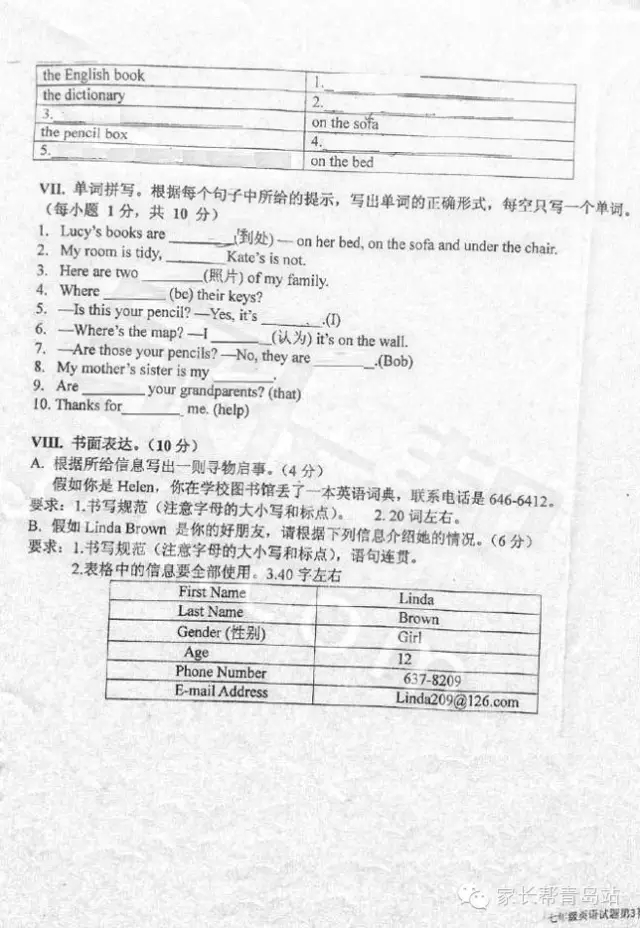 the English book 1.
the dictionary 2.
3. on the sofa
the pencil box 4.
5. on the bed
VII. 单词拼写。根据每个句子中所给的提示，写出单词的正确形式，每空只写一个单词。
（每小题 1 分，共 10 分）
1. Lucy's books are ________(到处) — on her bed, on the sofa and under the chair.
2. My room is tidy, ________ Kate's is not.
3. Here are two ________(照片) of my family.
4. Where ________ (be) their keys?
5. —Is this your pencil? —Yes, it's ________.(I)
6. —Where's the map? —I ________(认为) it's on the wall.
7. —Are those your pencils? —No, they are ________.(Bob)
8. My mother's sister is my ________.
9. Are ________ your grandparents? (that)
10. Thanks for________ me. (help)
VIII. 书面表达。（10 分）
A. 根据所给信息写出一则寻物启事。（4 分）
假如你是 Helen，你在学校图书馆丢了一本英语词典，联系电话是 646-6412。
要求：1.书写规范（注意字母的大小写和标点）。 2.20 词左右。
B. 假如 Linda Brown 是你的好朋友，请根据下列信息介绍她的情况。（6 分）
要求：1.书写规范（注意字母的大小写和标点），语句连贯。
2.表格中的信息要全部使用。3.40 字左右
First Name Linda
Last Name Brown
Gender (性别) Girl
Age 12
Phone Number 637-8209
E-mail Address Linda209@126.com
家长帮青岛站
七年级英语试题第3